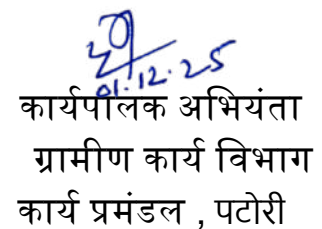 01.12.25
कार्यपालक अभियंता
ग्रामीण कार्य विभाग
कार्य प्रमंडल , पटोरी